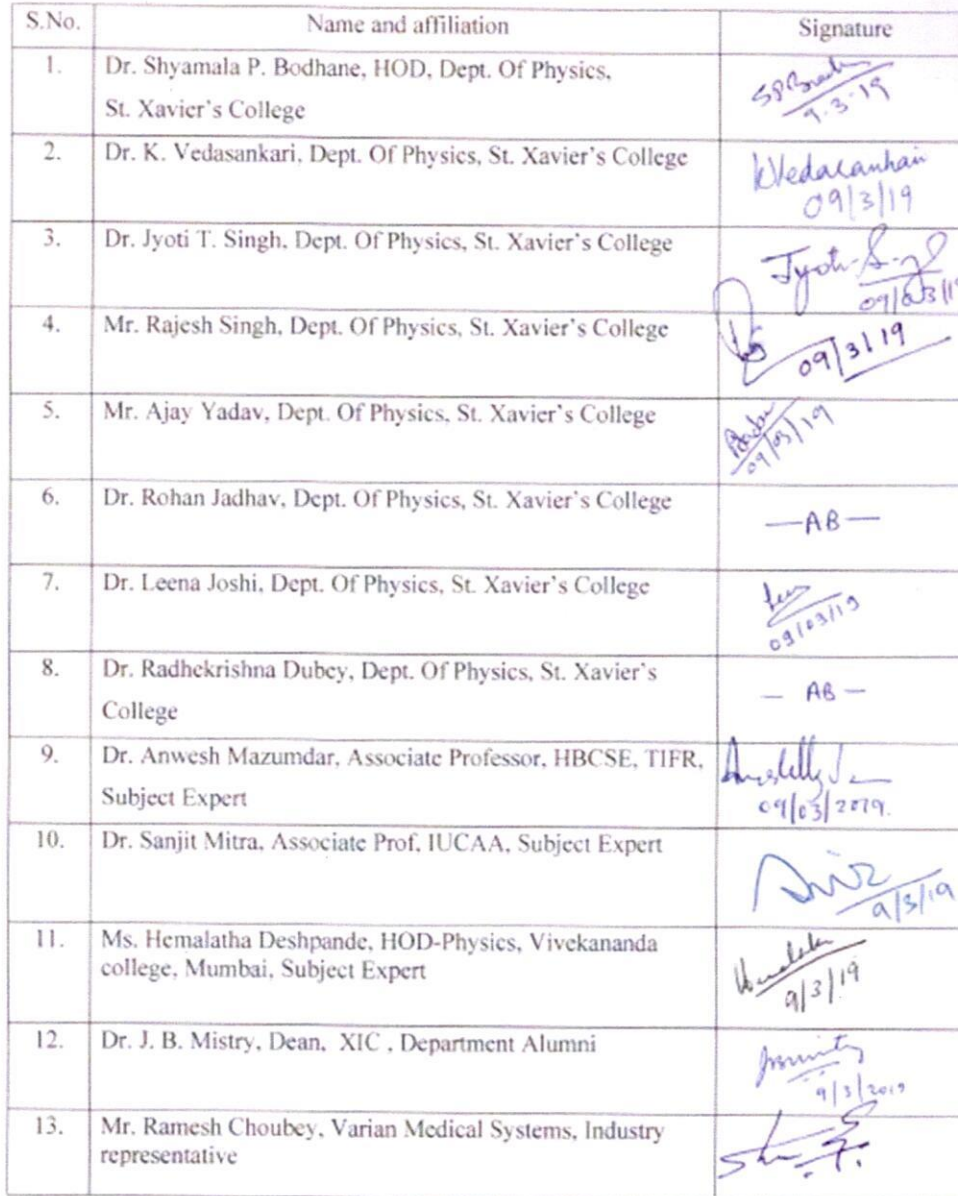 S.No. Name and affiliation Signature
1. Dr. Shyamala P. Bodhane, HOD, Dept. Of Physics,
St. Xavier's College
9.3.19
2. Dr. K. Vedasankari, Dept. Of Physics, St. Xavier's College
09/3/19
3. Dr. Jyoti T. Singh, Dept. Of Physics, St. Xavier's College Jyoti Singh
4. Mr. Rajesh Singh, Dept. Of Physics, St. Xavier's College
09/3/19
5. Mr. Ajay Yadav, Dept. Of Physics, St. Xavier's College
09/03/19
6. Dr. Rohan Jadhav, Dept. Of Physics, St. Xavier's College —AB—
7. Dr. Leena Joshi, Dept. Of Physics, St. Xavier's College
09/03/19
8. Dr. Radhekrishna Dubey, Dept. Of Physics, St. Xavier's — AB —
College
9. Dr. Anwesh Mazumdar, Associate Professor, HBCSE, TIFR,
Subject Expert 09/03/2019.
10. Dr. Sanjit Mitra, Associate Prof, IUCAA, Subject Expert
9/3/19
11. Ms. Hemalatha Deshpande, HOD-Physics, Vivekananda
college, Mumbai, Subject Expert
9/3/19
12. Dr. J. B. Mistry, Dean, XIC , Department Alumni
9/3/2019
13. Mr. Ramesh Choubey, Varian Medical Systems, Industry
representative